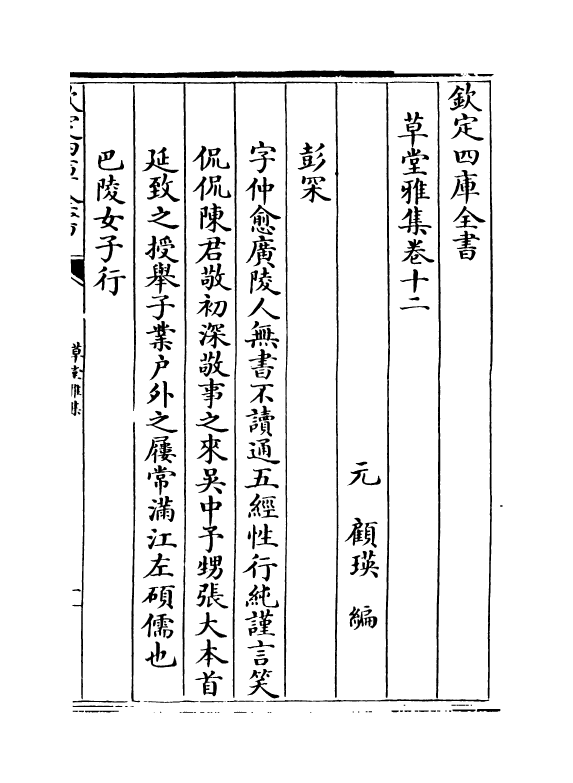 欽定四庫全書
草堂雅集卷十二
元　顧瑛　編
彭罙
字仲愈廣陵人無書不讀通五經性行純謹言笑
侃侃陳君敬初深敬事之來吳中予甥張大本首
延致之授舉子業户外之屨常滿江左碩儒也
巴陵女子行
草堂雅集